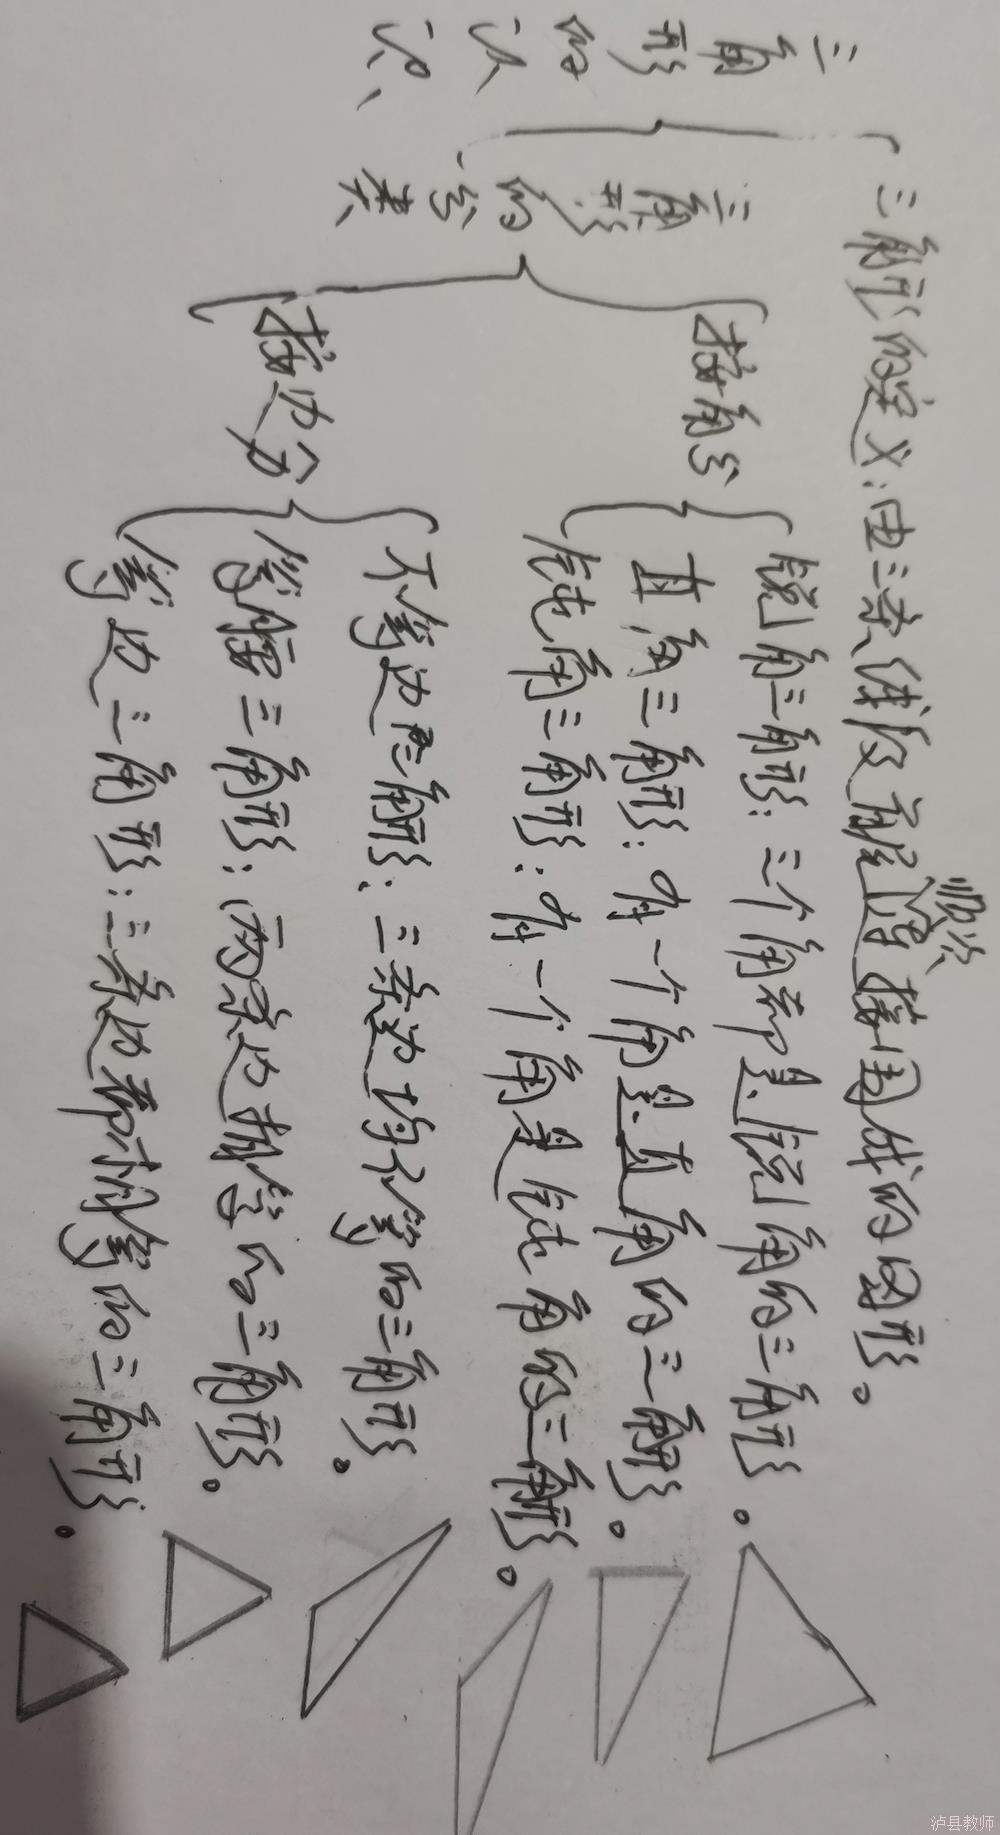 三角形的认识
三角形的定义：由三条线段首尾顺次接围成的图形。
三角形的分类
按角分
锐角三角形：三个角都是锐角的三角形。
直角三角形：有一个角是直角的三角形。
钝角三角形：有一个角是钝角的三角形。
按边分
不等边三角形：三条边均不等的三角形。
等腰三角形：两条边相等的三角形。
等边三角形：三条边都相等的三角形。
泸县教师